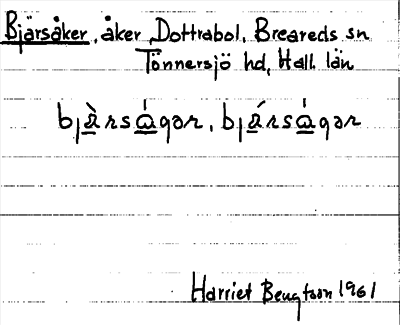 Bjärsåker, åker, Dottrabol, Breareds sn
Tönnersjö hd, Hall. län
bjä̀rsågər, bjä́rsågər
Harriet Bengtson 1961